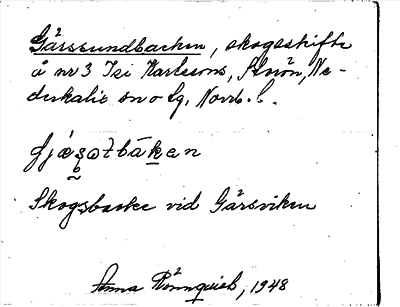 Gårssundbacken, skogsskifte
å nr 3 Isi Karlssons, Storön, Ne-
derkalix sn o lg, Norrb. l.
Skogsbacke vid Gårsviken
Anna Rönnquist, 1948